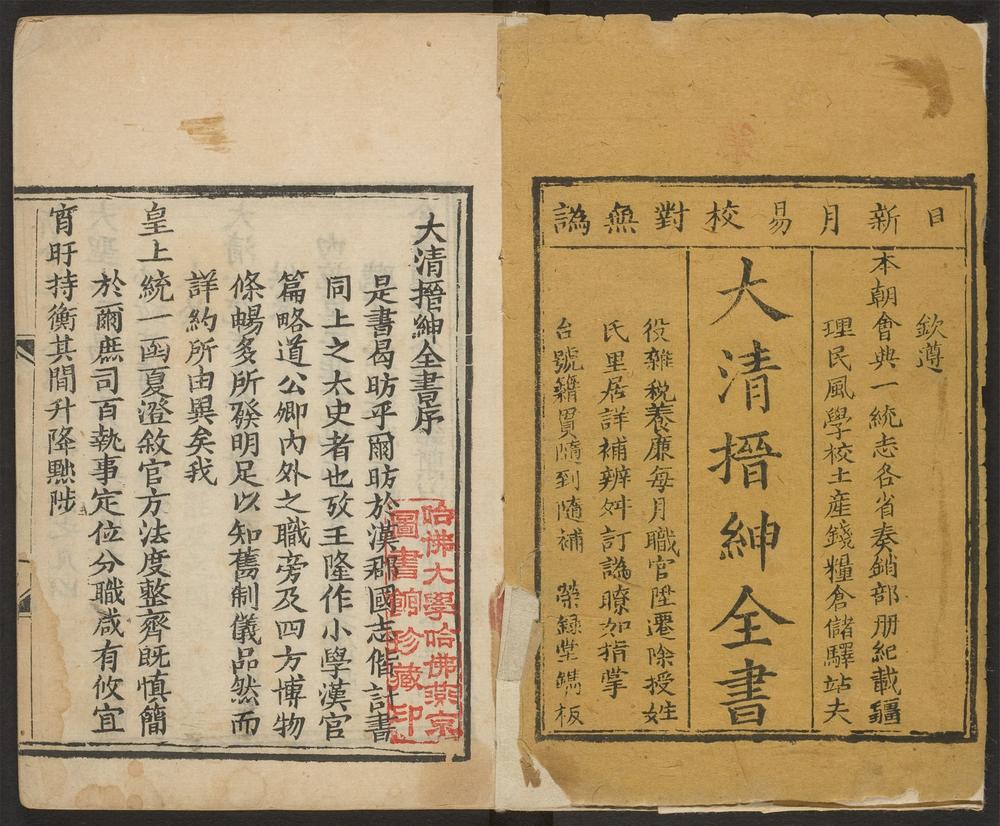 日新月易校對無譌
欽遵
本朝會典一統志各省奏銷部册紀載疆
理民風學校土産錢糧倉儲驛站夫
大清搢紳全書
役雜税養廉每月職官陞遷除授姓
氏里居詳補辨舛訂譌瞭如指掌
台號籍貫隨到隨補 榮錄堂鐫板
大清搢紳全書序
是書曷昉乎爾昉於漢郡國志偕計書
同上之太史者也攷王隆作小學漢官
篇略道公卿内外之職旁及四方博物
條暢多所發明足以知舊制儀品然而
詳約所由異矣我
皇上統一函夏澄敘官方法度整齊既慎簡
於爾庶司百執事定位分職咸有攸宜
宵旰持衡其間升降黜陟
哈佛大學哈佛燕京
圖書館珍藏印